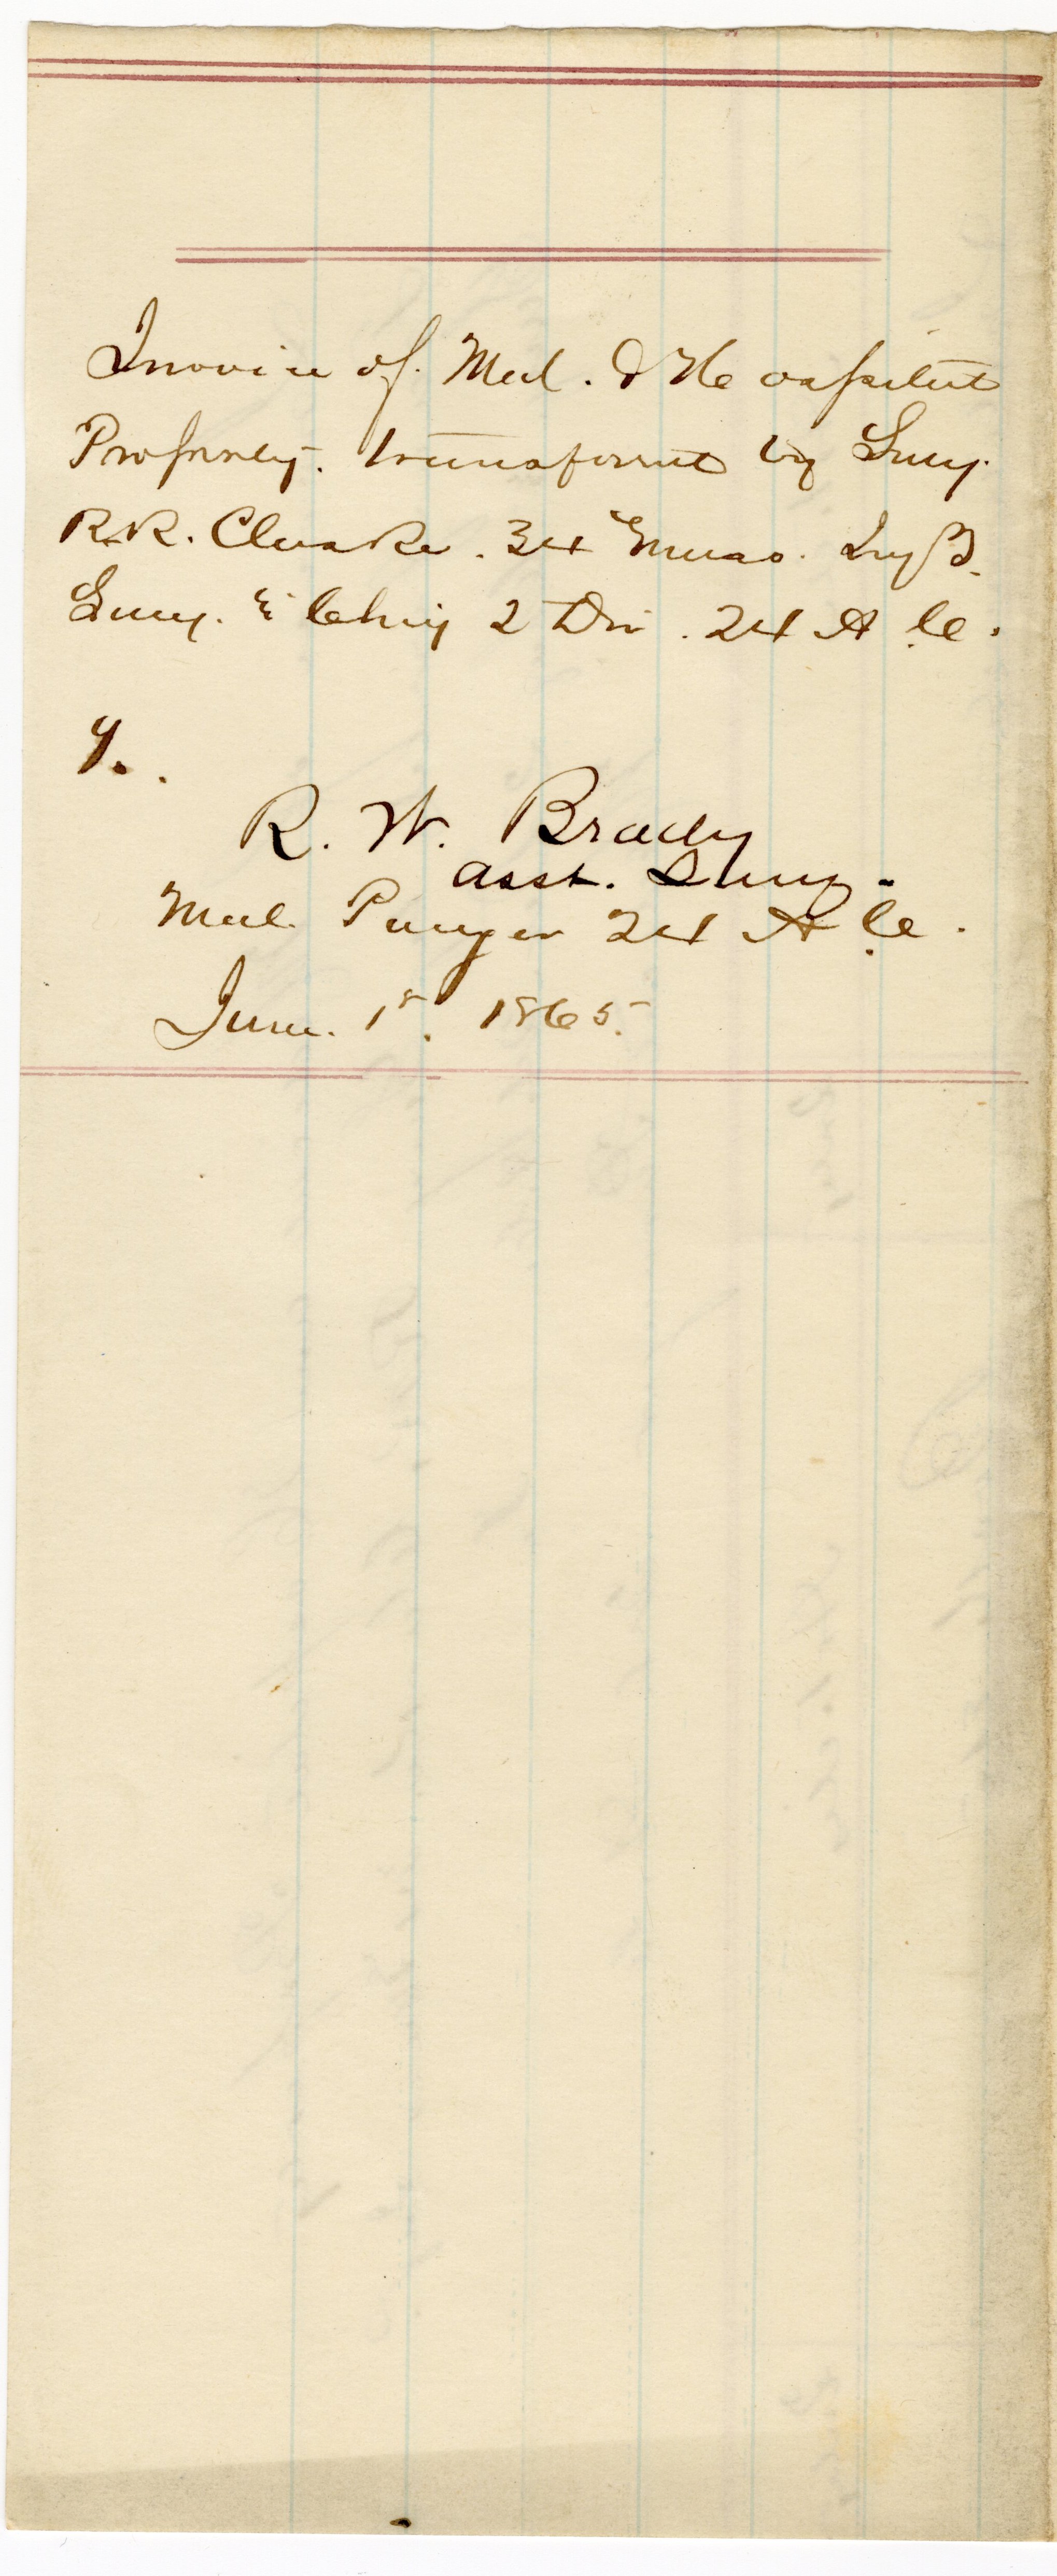 Invoice of Med. & Hospital
Property. transferred by Surg.
R.R. Clarke. 34" Mass. Inf
Surg. in Chief 2 Div. 24 A.C.
R. W. Brady
Asst. Surg.
Med. Purveyor 24 A.C.
June. 1st. 1865.